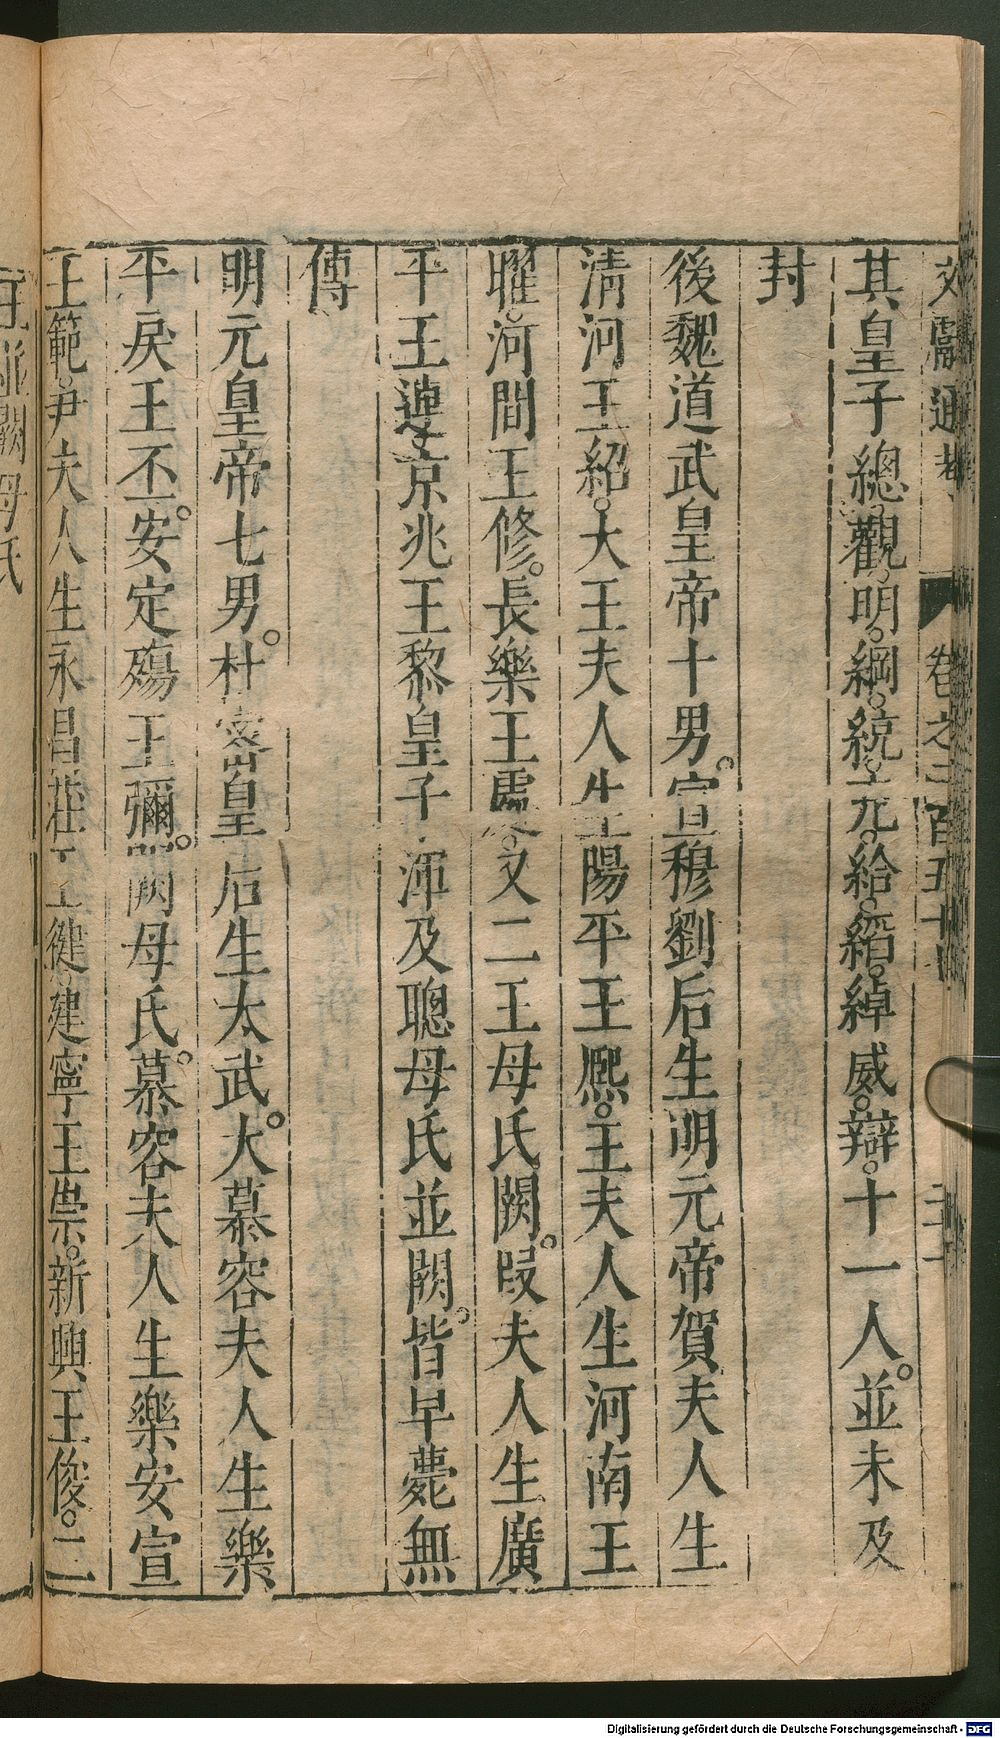 文獻通考 卷之二百五十 三十一
其皇子總觀明綱統元給縚綽威辯。十一人。並未及
封
後魏道武皇帝十男。宣穆劉后生明元帝賀夫人生
淸河王紹。大王夫人生陽平王熙。王夫人生河南王
曜。河間王修。長樂王處。又二王母氏闕。段夫人生廣
平王連京兆王黎皇子渾及聰母氏並闕。皆早薨無
傳
明元皇帝七男。杜密皇后生太武。大慕容夫人生樂
平戾王丕。安定殤王彌。闕母氏。慕容夫人生樂安宣
王範。尹夫人生永昌莊王健。建寧王崇。新興王俊。二
王並闕母氏
Digitalisierung gefördert durch die Deutsche Forschungsgemeinschaft - DFG